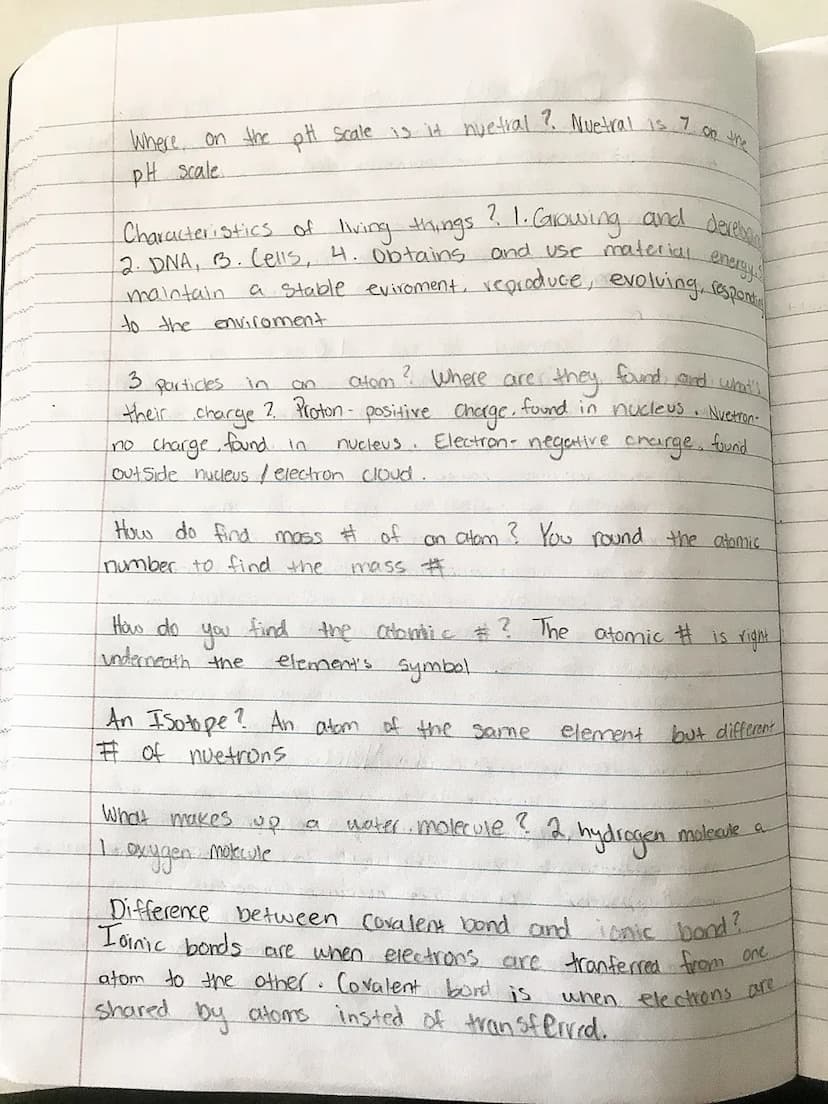 Where on the pH scale is it nuetral? Nuetral is 7 on the
pH scale.
Characteristics of living things? 1. Growing and
2. DNA, 3. Cells, 4. Obtains and use material energy,
maintain a stable eviroment, reproduce, evolving, responding
to the enviroment
3 particles in an atom? Where are they found and what's
their charge? Proton - positive charge, found in nucleus. Nuetron-
no charge, found in nucleus. Electron- negative charge, found
outside nucleus / electron cloud.
How do find mass # of an atom? You round the atomic
number to find the mass #
How do you find the atomic #? The atomic # is right
underneath the element's symbol
An Isotope? An atom of the same element but different
# of nuetrons
What makes up a water molecule? 2 hydrogen molecule a
1 oxygen molecule
Difference between covalent bond and ionic bond?
Ioinic bonds are when electrons are tranferred from one
atom to the other. Covalent bond is when electrons are
shared by atoms insted of transferred.